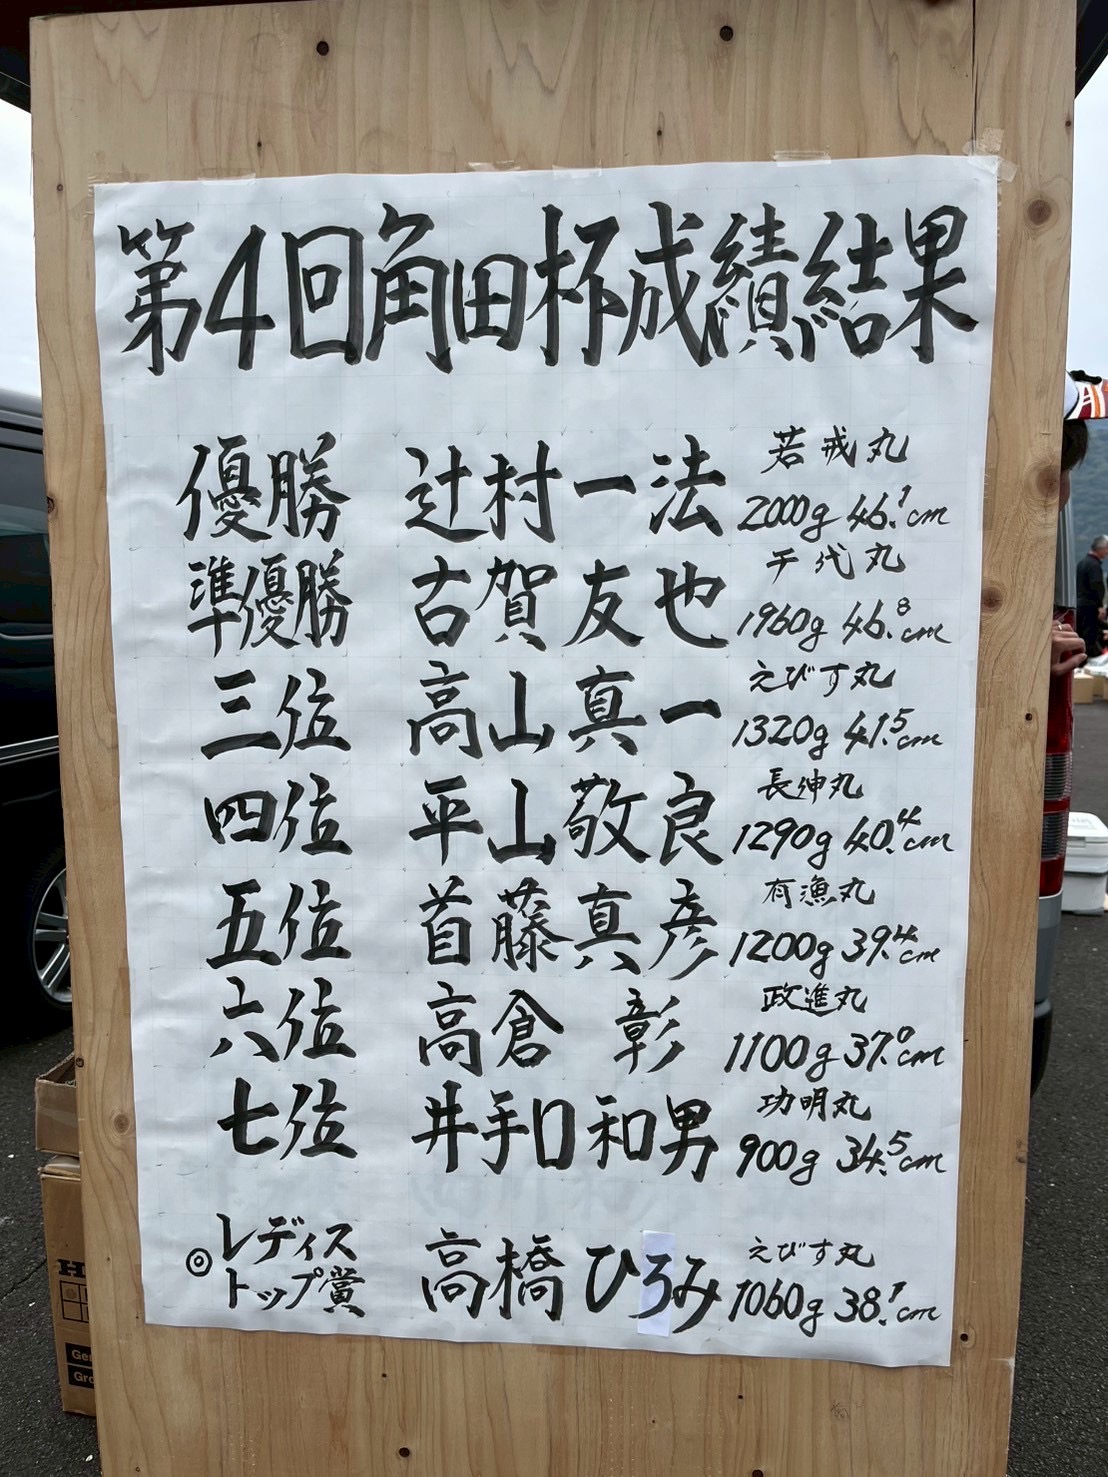 第4回角田杯成績結果
優勝 辻村一法 若戎丸
2000g 46.1cm
準優勝 古賀友也 千代丸
1960g 46.8cm
三位 高山真一 えびす丸
1320g 41.5cm
四位 平山敬良 長伸丸
1290g 40.4cm
五位 首藤真彦 有漁丸
1200g 39.4cm
六位 高倉 彰 政進丸
1100g 37.0cm
七位 井手口和男 功明丸
900g 34.5cm
◎レディス
トップ賞 高橋ひろみ えびす丸
1060g 38.1cm